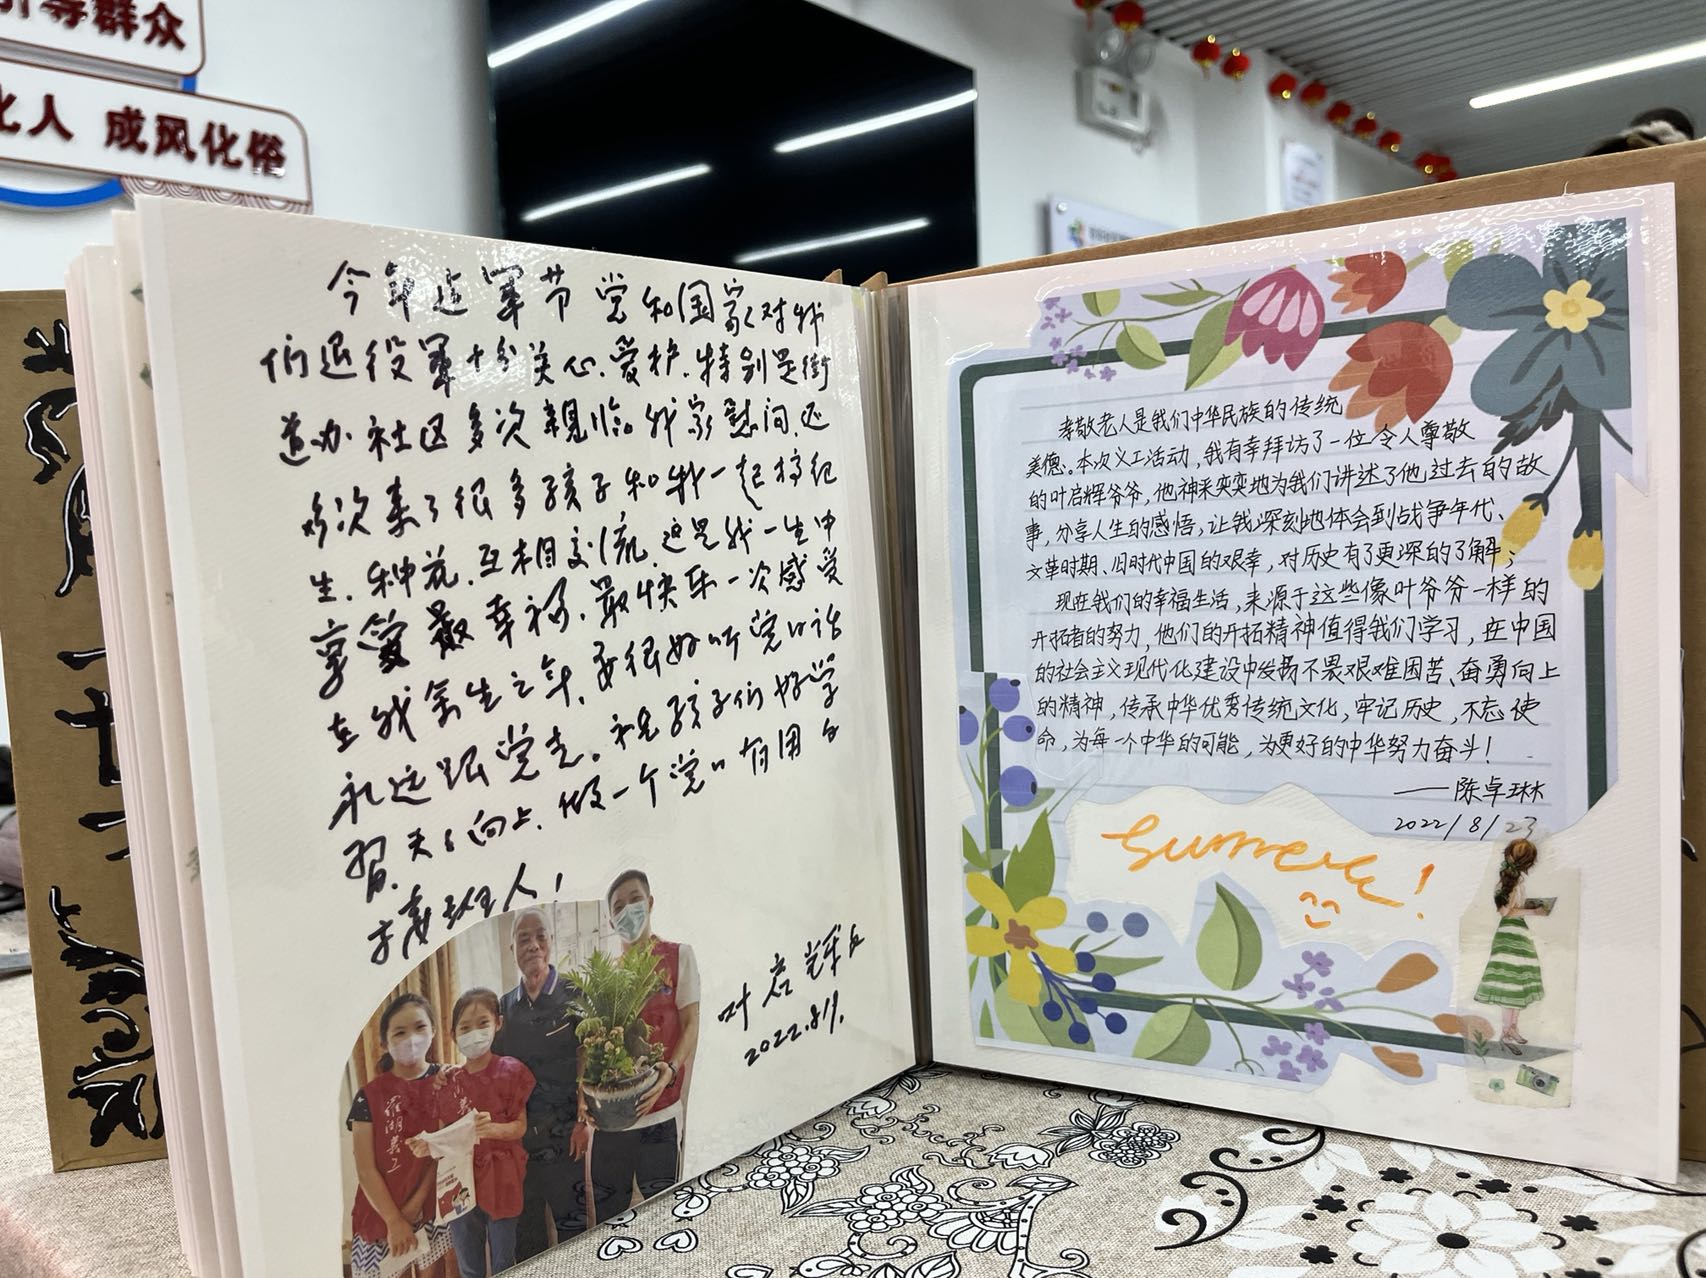 引导群众
化人 成风化俗
今年建军节党和国家对我
们退役军十分关心、爱护.特别是街
道办社区多次親临我家慰问.还
多次来了很多孩子和我一起搞卫
生.种花.互相交流.这是我一生中
享受最幸福.最快乐一次感受
在我余生之年.要很好听党的话
永远跟党走。祝孩子们好学
习.天天向上.做一个党的有用的
接班人!
叶启辉
2022.8.19.
羅湖義工
孝敬老人是我们中华民族的传统
美德。本次义工活动，我有幸拜访了一位令人尊敬
的叶启辉爷爷，他神采奕奕地为我们讲述了他过去的故
事，分享人生的感悟，让我深刻地体会到战争年代、
文革时期、旧时代中国的艰辛，对历史有了更深的了解；
现在我们的幸福生活，来源于这些像叶爷爷一样的
开拓者的努力，他们的开拓精神值得我们学习，在中国
的社会主义现代化建设中发扬不畏艰难困苦、奋勇向上
的精神，传承中华优秀传统文化，牢记历史，不忘使
命，为每一个中华的可能，为更好的中华努力奋斗！
——陈卓琳
2022/8/23
Summer!